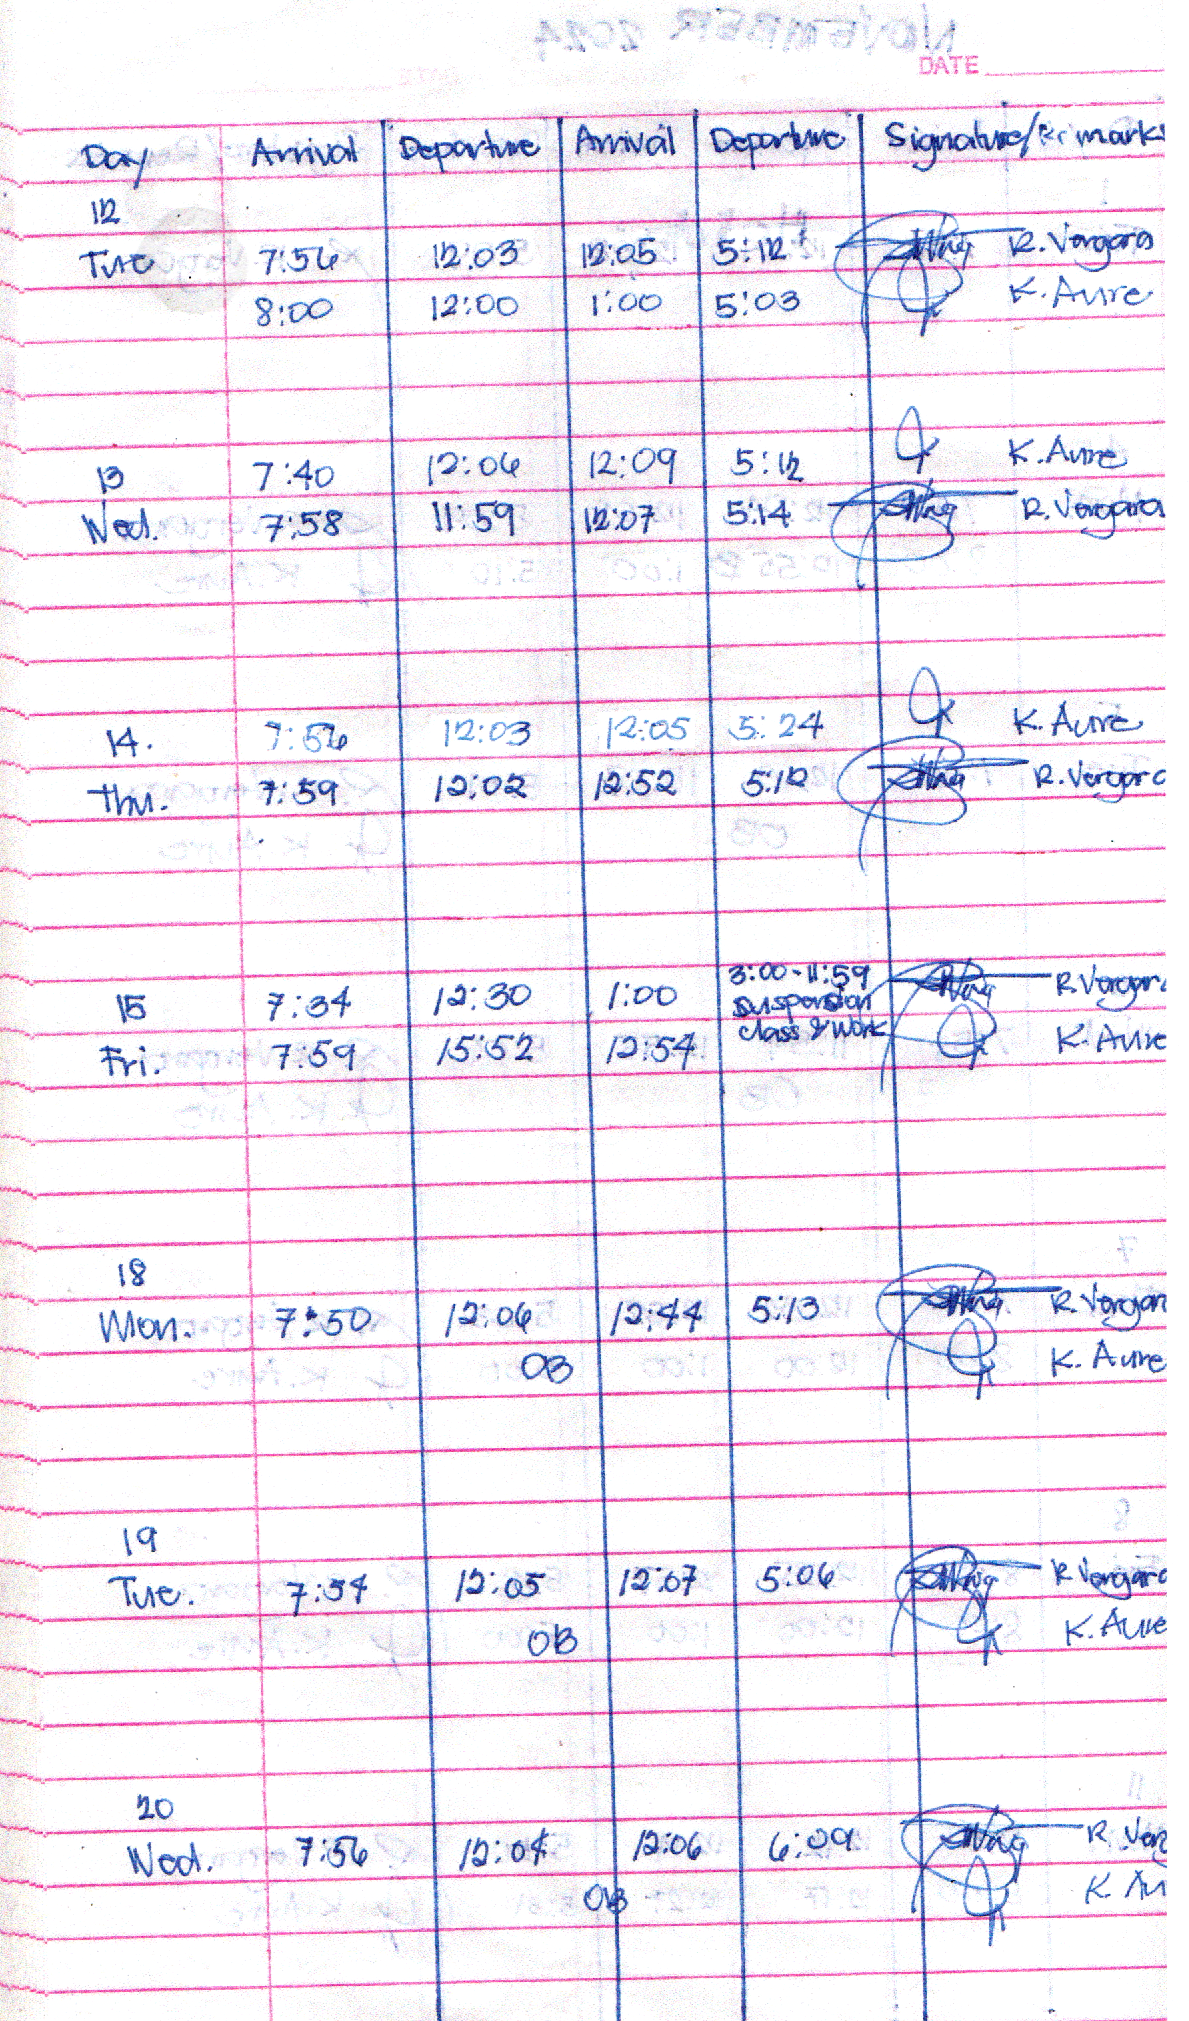 DATE
Day Arrival Departure Arrival Departure Signature/Remarks
12
Tue 7:56 12:03 12:05 5:12 R. Vergara
8:00 12:00 1:00 5:03 K. Aure
13 7:40 12:06 12:09 5:12 K. Aure
Wed. 7:58 11:59 12:07 5:14 R. Vergara
14. 7:56 12:03 12:05 5:24 K. Aure
Thu. 7:59 12:02 12:52 5:12 R. Vergara
3:00-11:59
15 7:34 12:30 1:00 suspension R. Vergara
class & work
Fri. 7:59 15:52 12:54 K. Aure
18
Mon. 7:50 12:06 12:44 5:13 R. Vergara
OB K. Aure
19
Tue. 7:54 12:05 12:07 5:06 R. Vergara
OB K. Aure
20
Wed. 7:56 12:04 12:06 6:29 R. Ver
OB K. Au